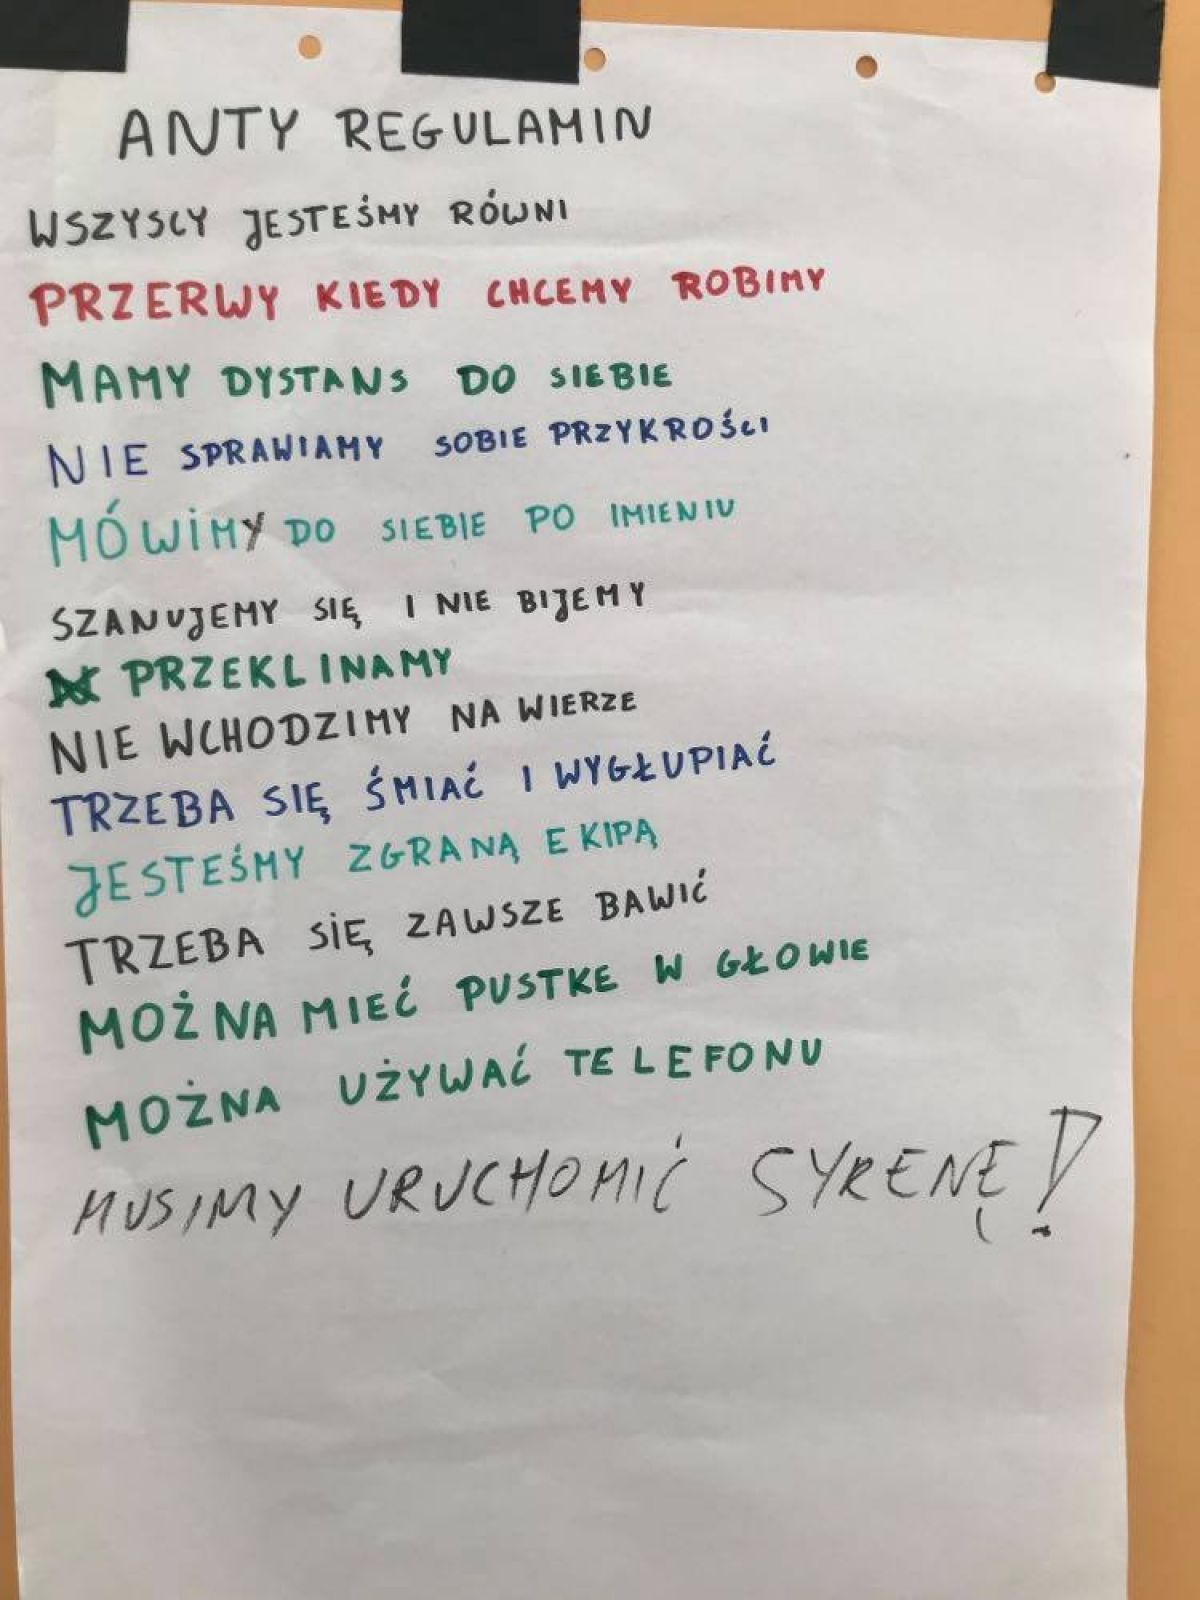 ANTY REGULAMIN
WSZYSCY JESTEŚMY RÓWNI
PRZERWY KIEDY CHCEMY ROBIMY
MAMY DYSTANS DO SIEBIE
NIE SPRAWIAMY SOBIE PRZYKROŚCI
MÓWIMY DO SIEBIE PO IMIENIU
SZANUJEMY SIĘ I NIE BIJEMY
PRZEKLINAMY
NIE WCHODZIMY NA WIERZE
TRZEBA SIĘ ŚMIAĆ I WYGŁUPIAĆ
JESTEŚMY ZGRANĄ EKIPĄ
TRZEBA SIĘ ZAWSZE BAWIĆ
MOŻNA MIEĆ PUSTKE W GŁOWIE
MOŻNA UŻYWAĆ TELEFONU
MUSIMY URUCHOMIĆ SYRENĘ!